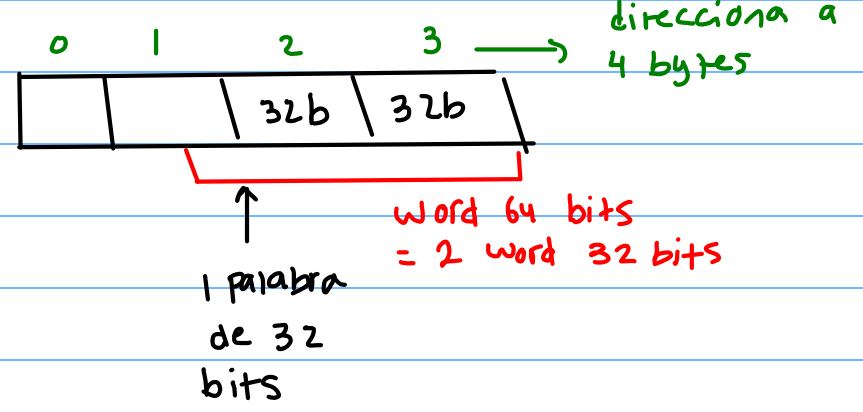 direcciona a
4 bytes
0 1 2 3
32b 32b
word 64 bits
= 2 word 32 bits
1 palabra
de 32
bits